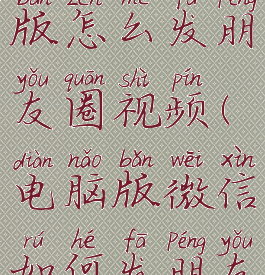 bǎn zěn me fā péng
版怎么发朋
yǒu quān shì pín
友圈视频(
diàn nǎo bǎn wēi xìn
电脑版微信
rú hé fā Péng yǒu
如何发朋友